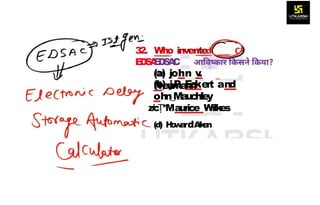 EDSAC → Ist gen.
32. Who invented
EDSAEDSAC आविष्कार किसने किया?
(a) john v.
(b) J.P. Eckert and
ohn Mauchley
Maurice Wilkes
(d) Howard Aken
Electronic Delay
Storage Automatic
Calculator
UTKARSH
CLASSES